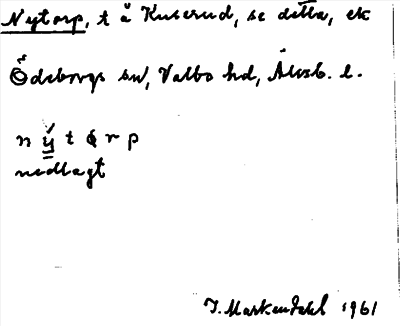 Nytorp, t å Kuserud, se detta, ek
Ödeborgs sn, Valbo hd, Älvsb. l.
n y t o r p
nedlagt
J. Markendahl 1961